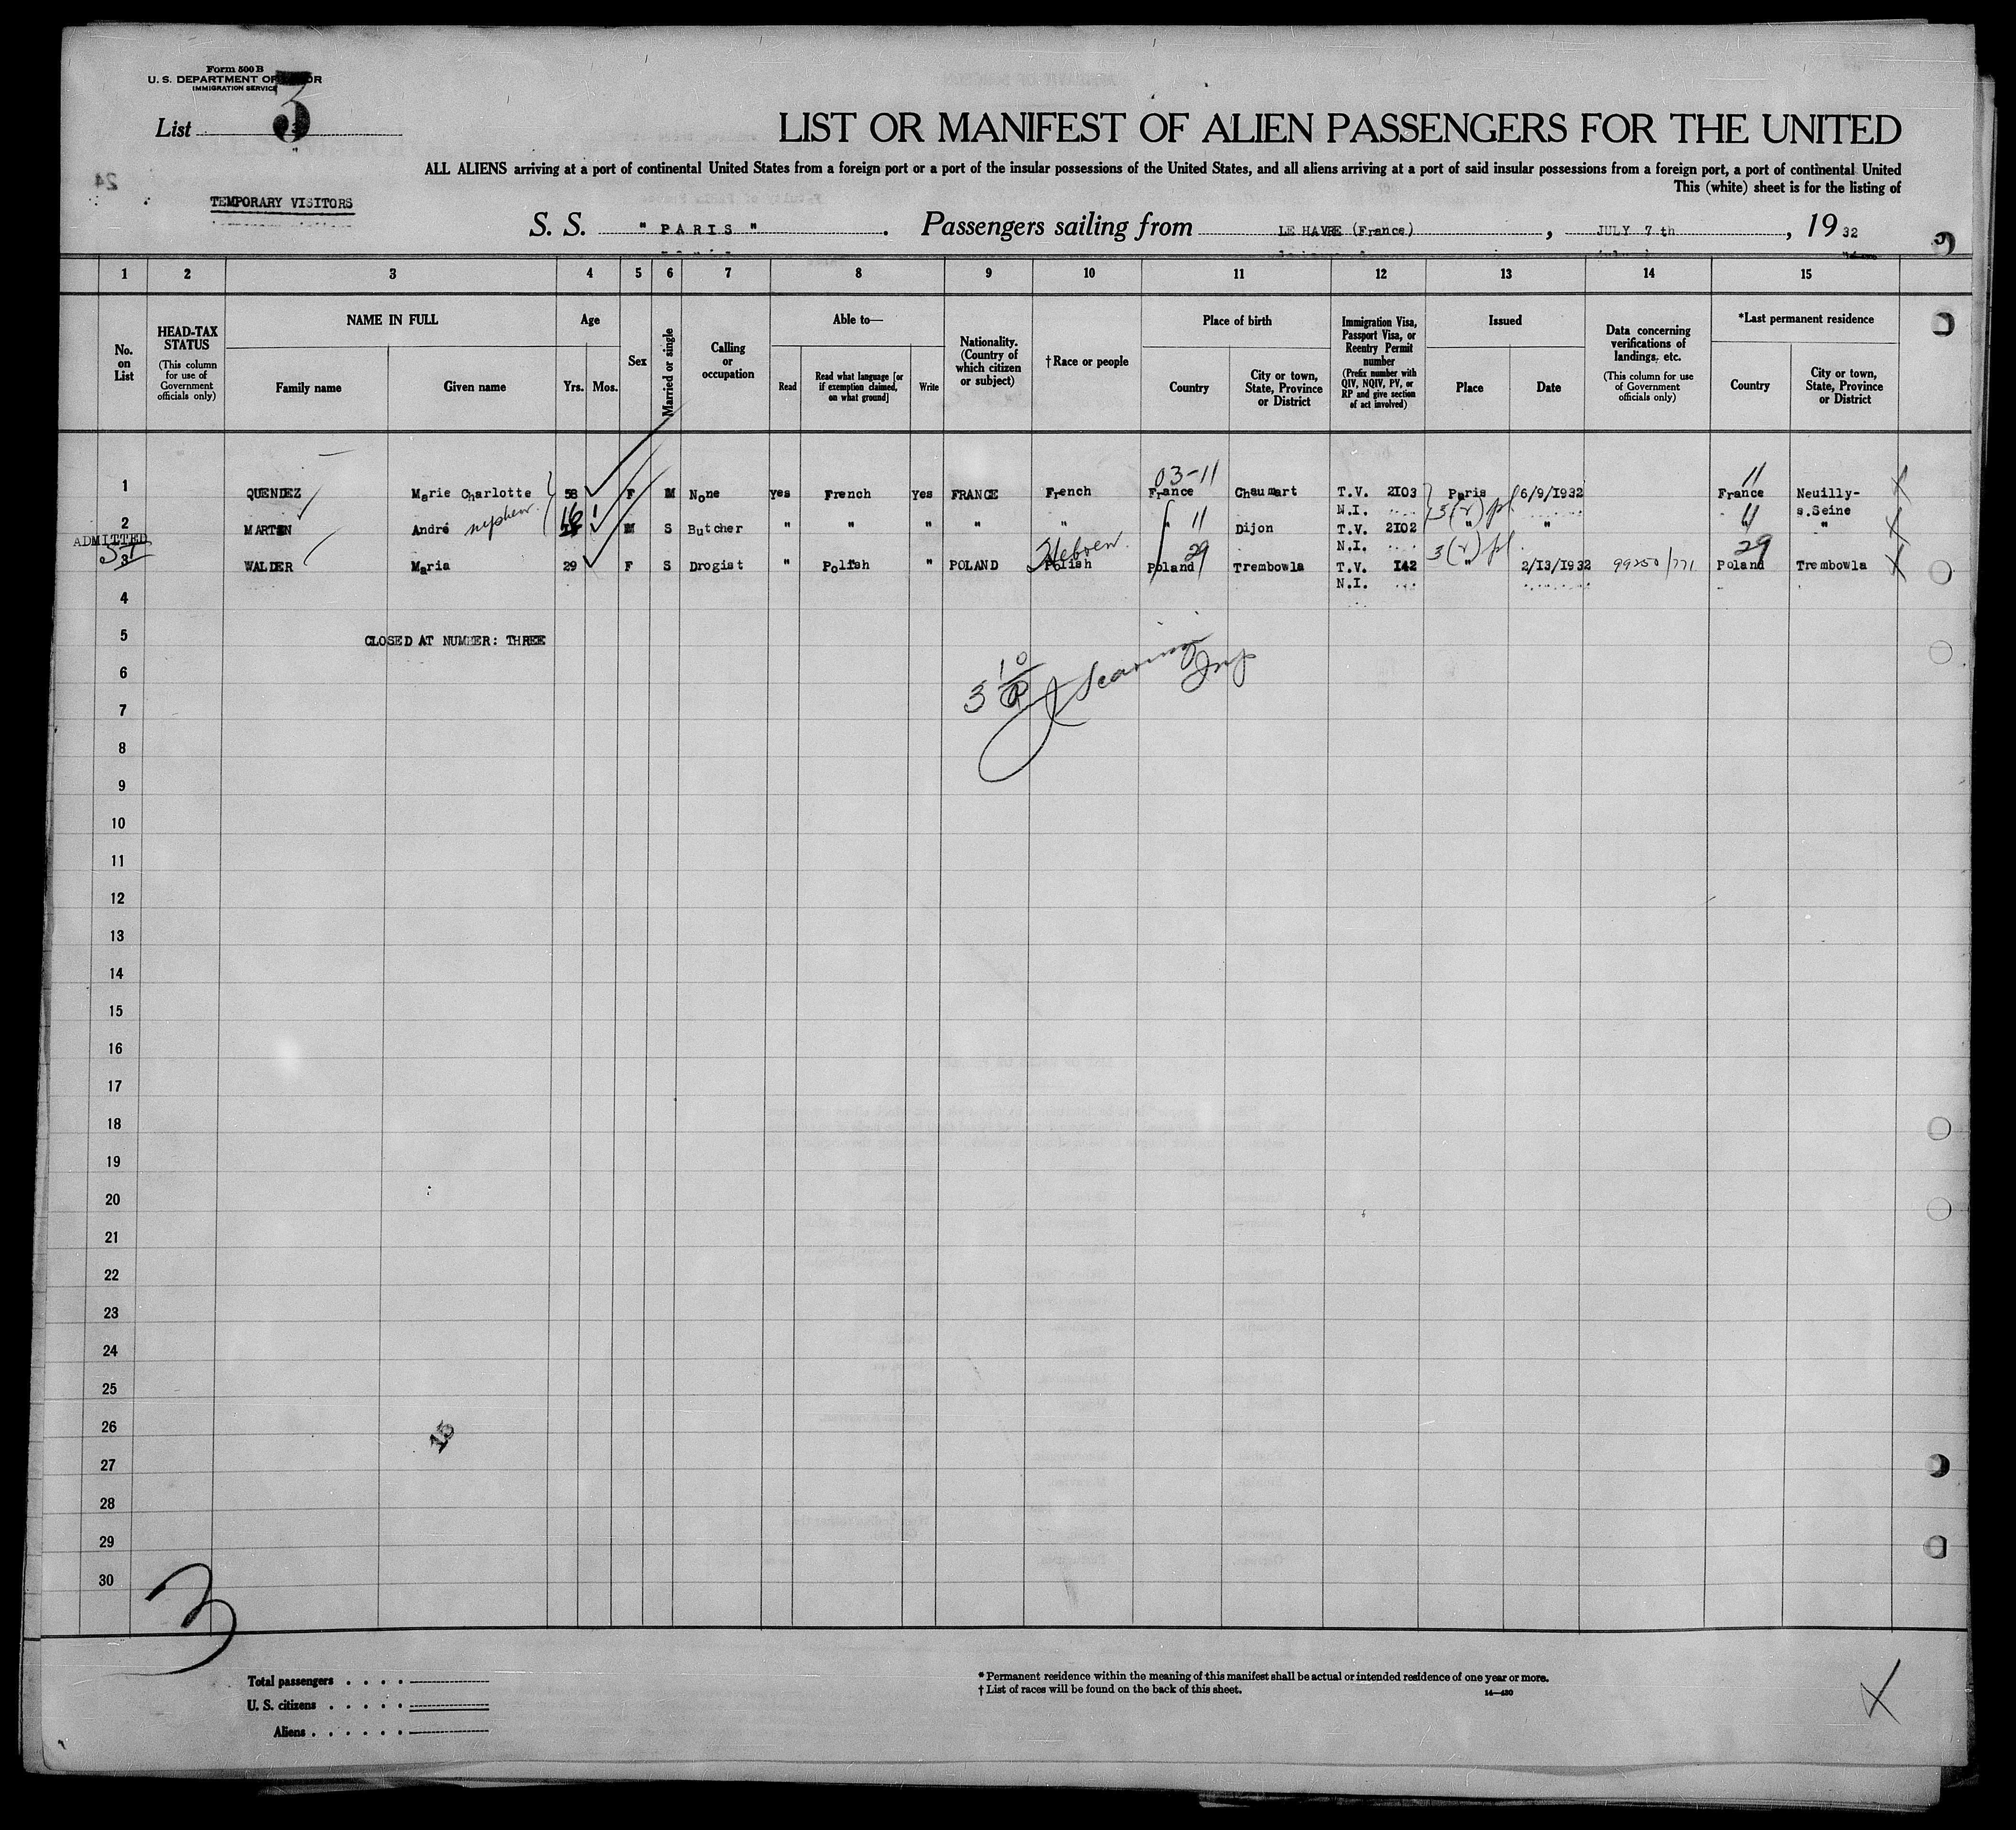 Form 500 B
U. S. DEPARTMENT OF LABOR
IMMIGRATION SERVICE
List 3
LIST OR MANIFEST OF ALIEN PASSENGERS FOR THE UNITED
ALL ALIENS arriving at a port of continental United States from a foreign port or a port of the insular possessions of the United States, and all aliens arriving at a port of said insular possessions from a foreign port, a port of continental United
This (white) sheet is for the listing of
24
TEMPORARY VISITORS
S. S. " PARIS ". Passengers sailing from LE HAVRE (France), JULY 7 th, 19 32
1 2 3 4 5 6 7 8 9 10 11 12 13 14 15
No. on List
HEAD-TAX STATUS
(This column for use of Government officials only)
NAME IN FULL
Family name
Given name
Age
Yrs. Mos.
Sex
Married or single
Calling or occupation
Able to—
Read
Read what language [or if exemption claimed, on what ground]
Write
Nationality. (Country of which citizen or subject)
† Race or people
Place of birth
Country
City or town, State, Province or District
Immigration Visa, Passport Visa, or Reentry Permit number
(Prefix number with QIV, NQIV, PV, or RP and give section of act involved)
Issued
Place
Date
Data concerning verifications of landings, etc.
(This column for use of Government officials only)
*Last permanent residence
Country
City or town, State, Province or District
03-11 11
1 QUENDEZ Marie Charlotte 58 F M None yes French Yes FRANCE French France Chaumart T.V. 2103 Paris 6/9/1932 France Neuilly-
N.I. 3(2) pl s.Seine
16 11 11
2 MARTIN André nephew M S Butcher " " " " " " Dijon T.V. 2102 " " " "
ADMITTED N.I. 3(2) pl
Hebrew 29 29
WALDER Maria 29 F S Drogist " Polish " POLAND Polish Poland Trembowla T.V. 142 " 2/13/1932 99250/771 Poland Trembowla
N.I.
4
5 CLOSED AT NUMBER: THREE
6
7
8
9
10
11
12
13
14
15
16
17
18
19
20
21
22
23
24
25
26
15
27
28
29
30
3
Total passengers
U. S. citizens
Aliens
* Permanent residence within the meaning of this manifest shall be actual or intended residence of one year or more.
† List of races will be found on the back of this sheet.
14—430